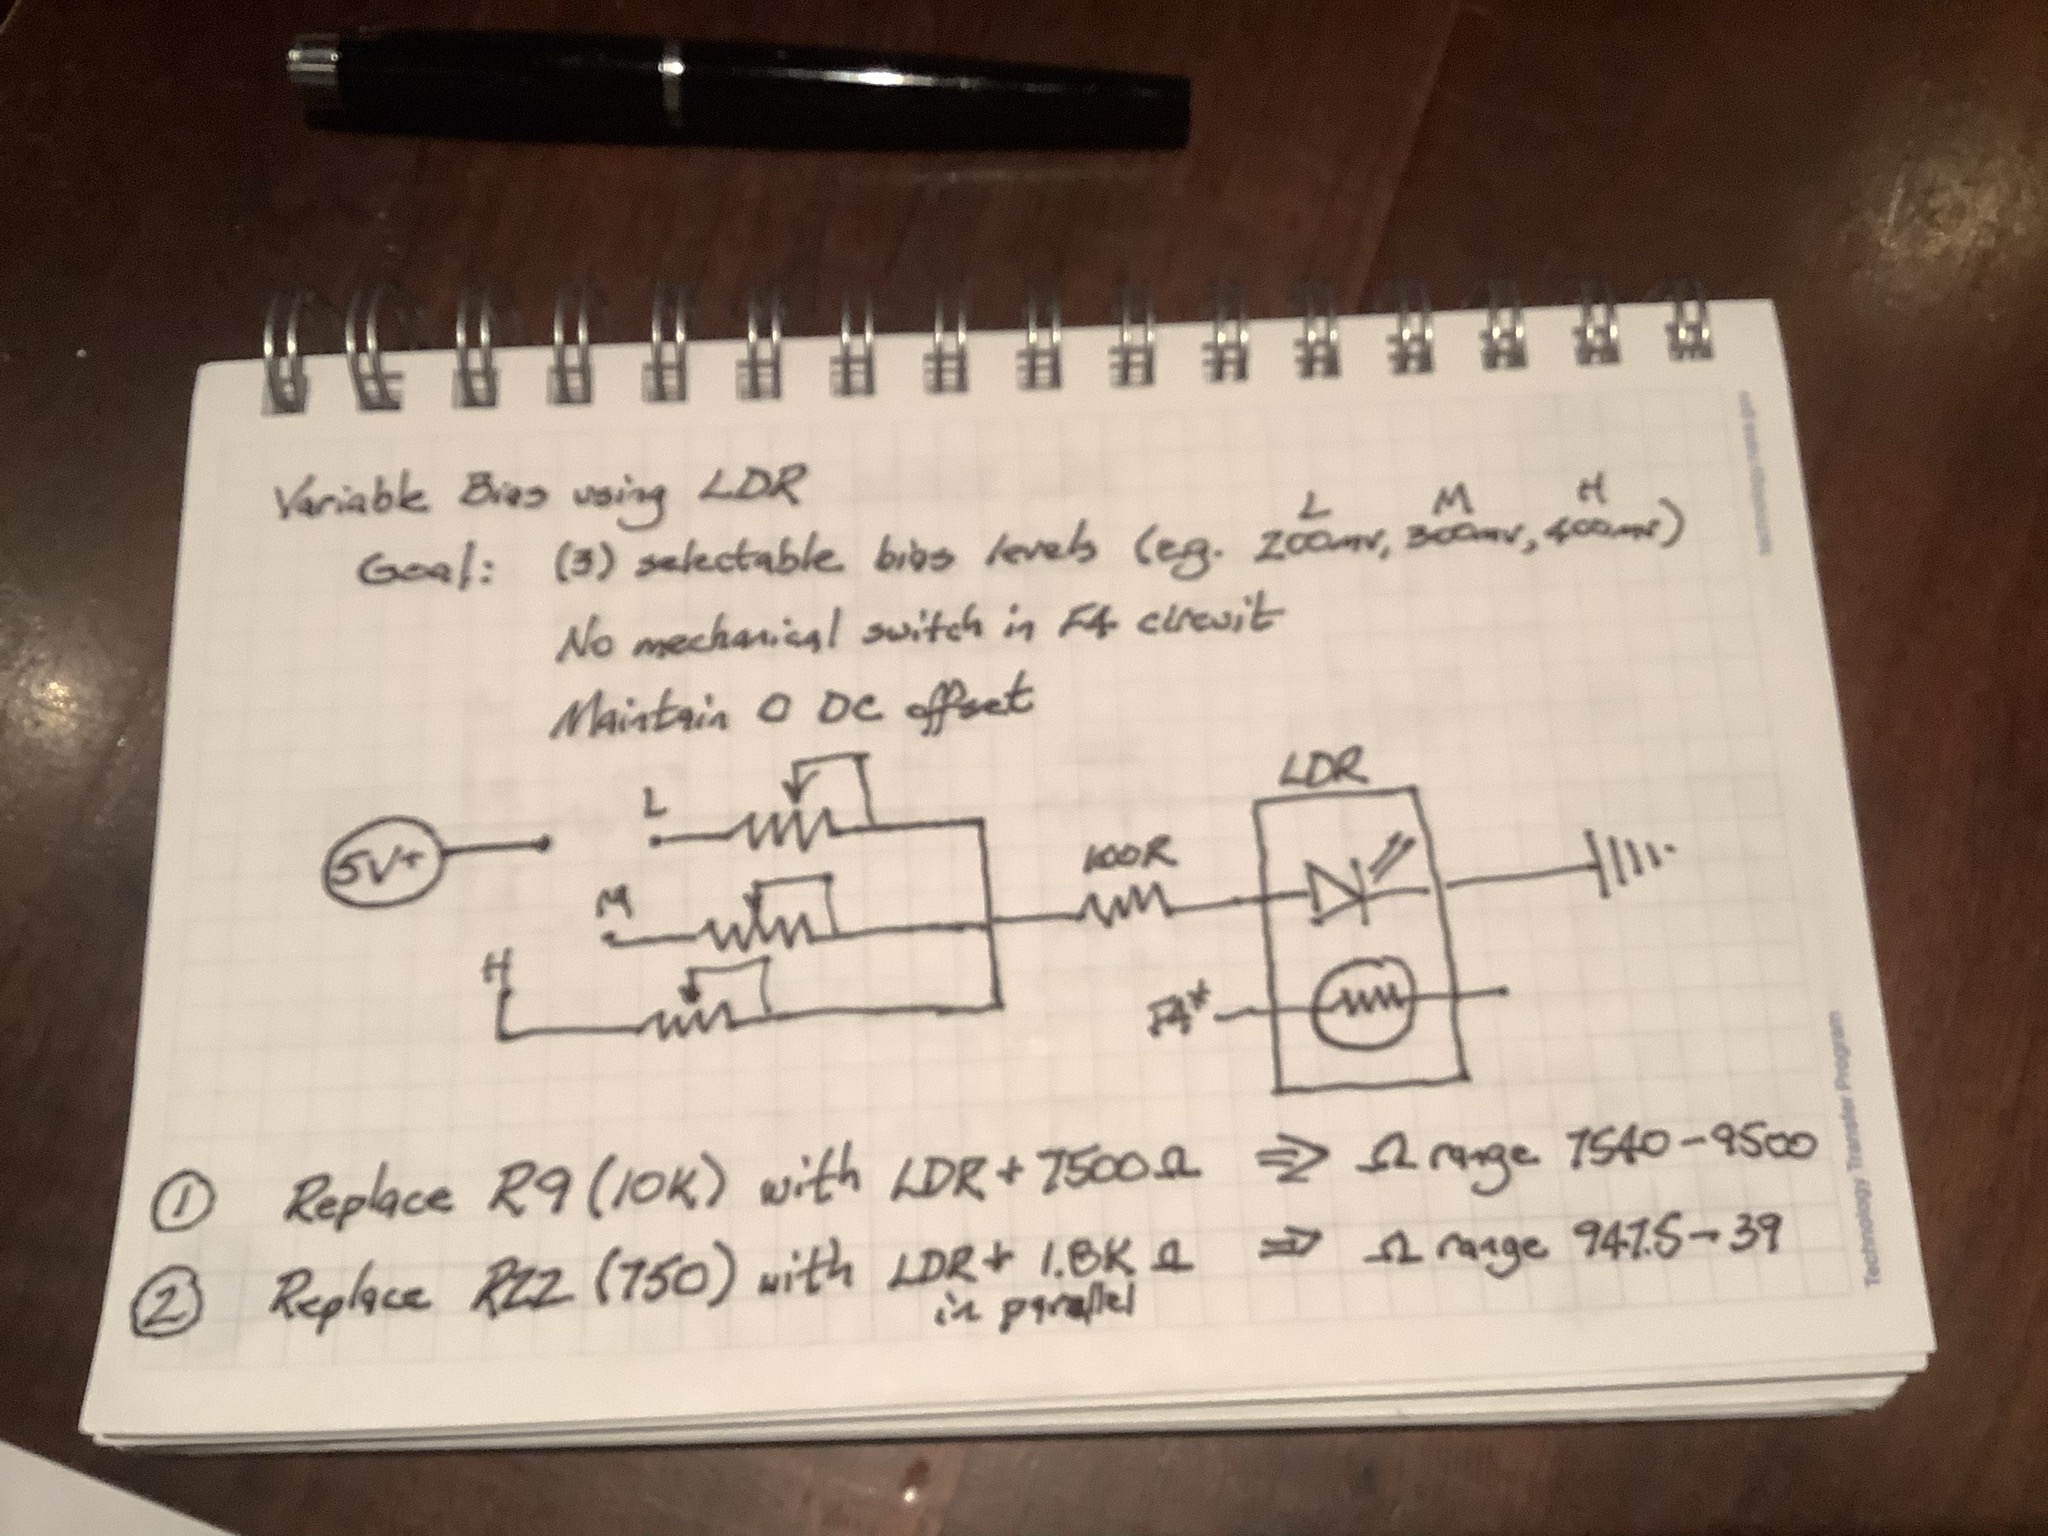 L M H
Variable Bias using LDR
Goal: (3) selectable bias levels (eg. 200mv, 300mv, 400mv)
No mechanical switch in F4 circuit
Maintain 0 DC offset
LDR
L
5V+
100R
M
H
F4*
① Replace R9 (10K) with LDR + 7500Ω ⇒ Ω range 7540-9500
② Replace R22 (750) with LDR + 1.8K Ω ⇒ Ω range 947.5-39
in parallel
technology.nasa.gov
Technology Transfer Program